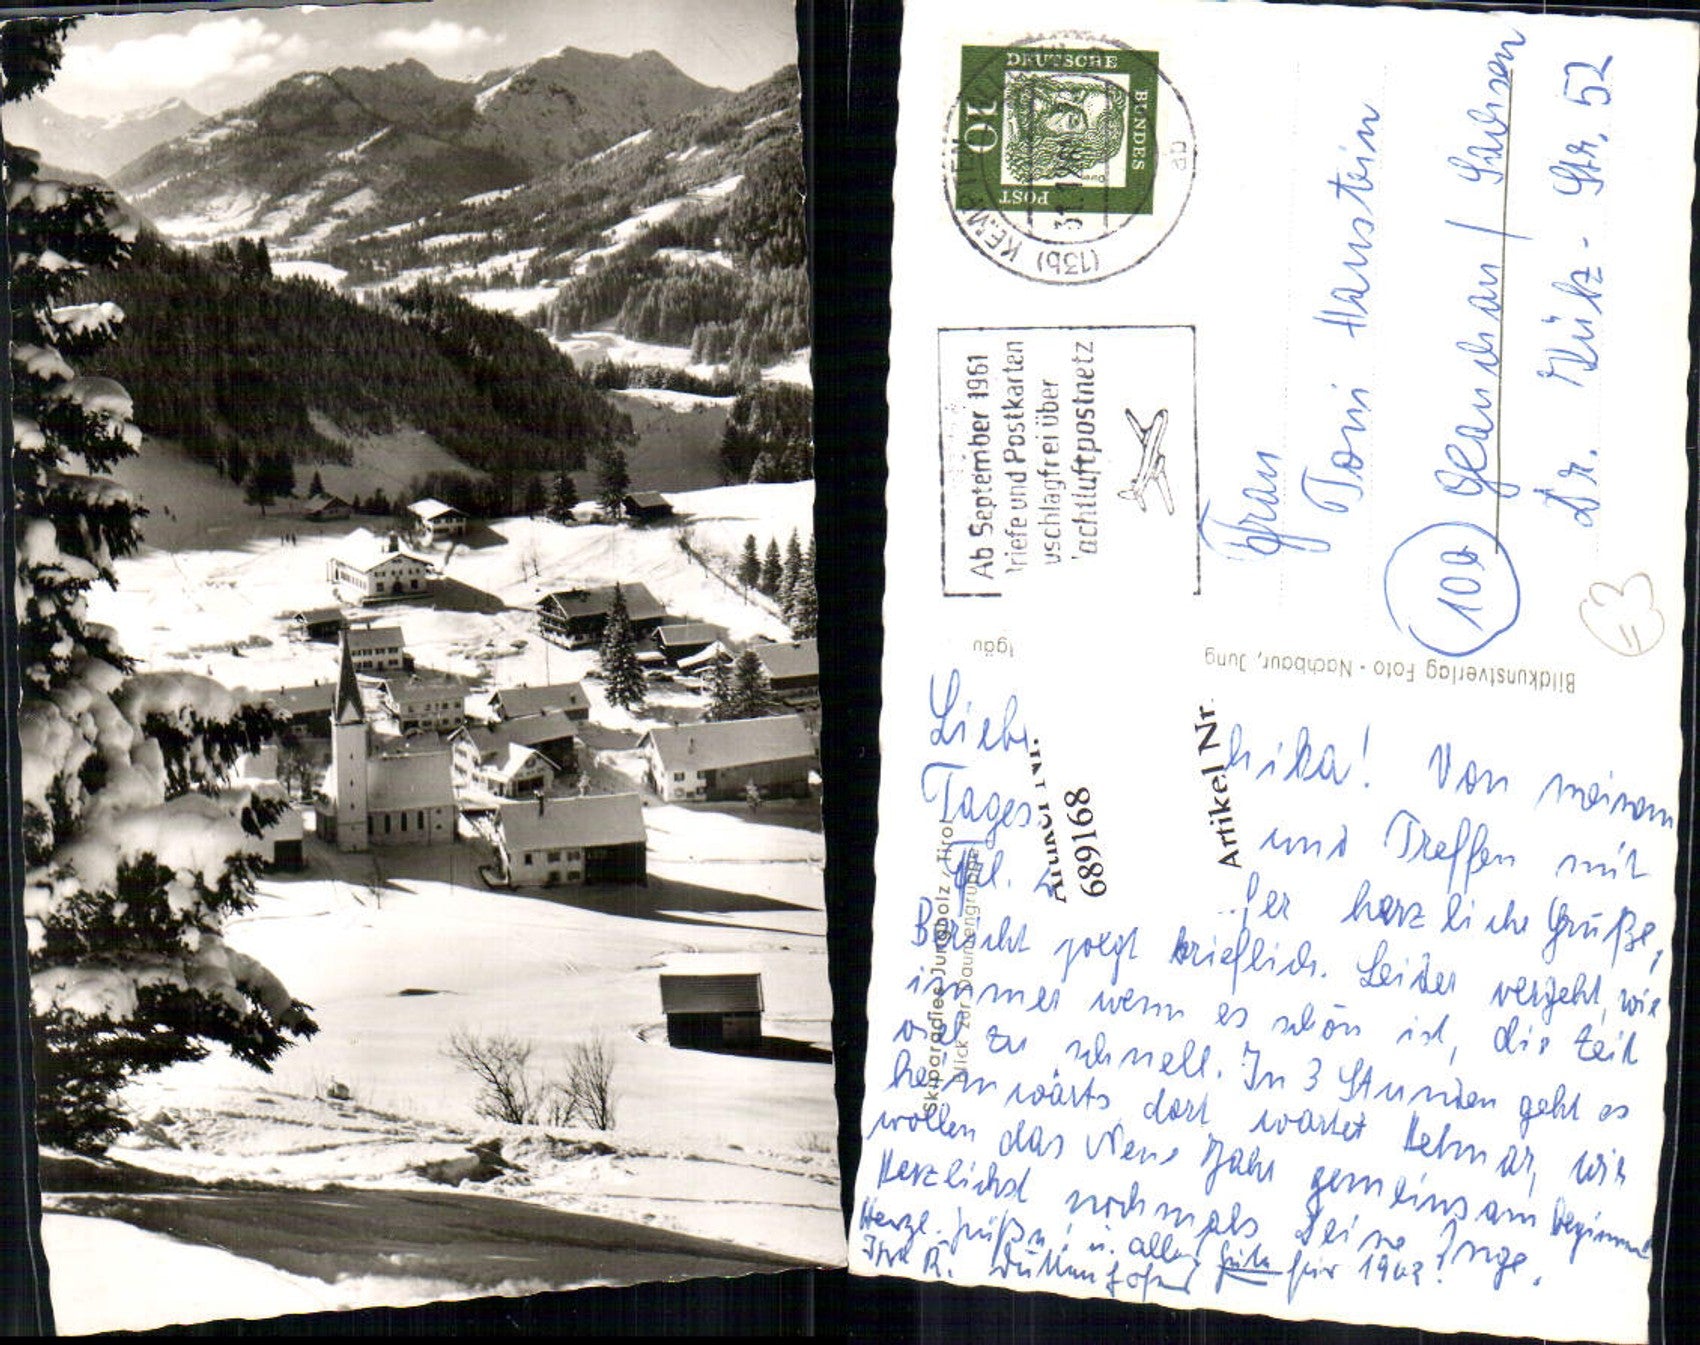 DEUTSCHE
BUNDES
POST
10
(13b) KEMPTEN
31.12.61
ab
Ab September 1961
riefe und Postkarten
uschlagfrei über
achtluftpostnetz
Frau
Toni Haustein
(10b) Glauchau / Sachsen
Dr. Külz - Str. 52
=3
lgäu
Bildkunstverlag Foto - Nachbaur, Jung
Artikel Nr.
689168
Artikel Nr.
Skiparadies Jungholz / Tirol
Blick zur Daumengruppe
Liebe hika! Von meinem
Tages und Treffen mit
Frl. er herzliche Grüße,
Bericht folgt brieflich. Leider vergeht, wie
immer wenn es schön ist, die Zeit
viel zu schnell. In 3 Stunden geht es
heimwärts dort wartet Helmar, wir
wollen das Neue Jahr gemeinsam beginnen
Herzlichst nochmals Deine Inge.
Herzl. Grüße u. alles Gute für 1962!
Ihr R.